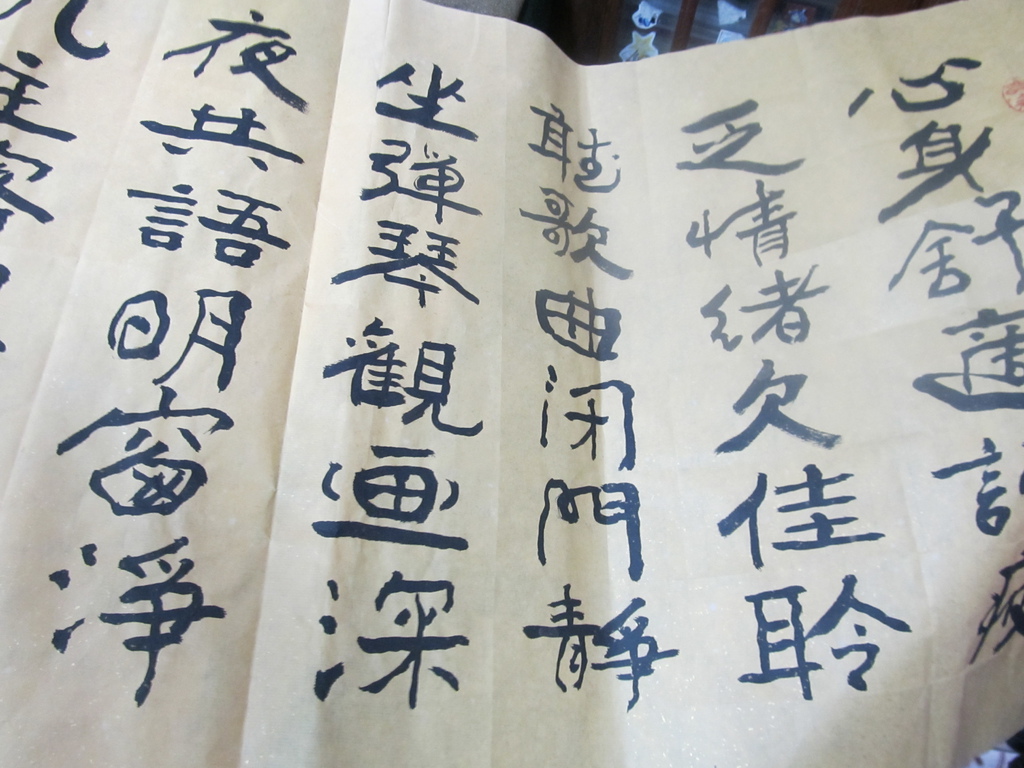 心身舒適
乏情緒欠佳聆
聽歌曲闭門靜
坐彈琴觀画深
夜共語明窗淨
几主客